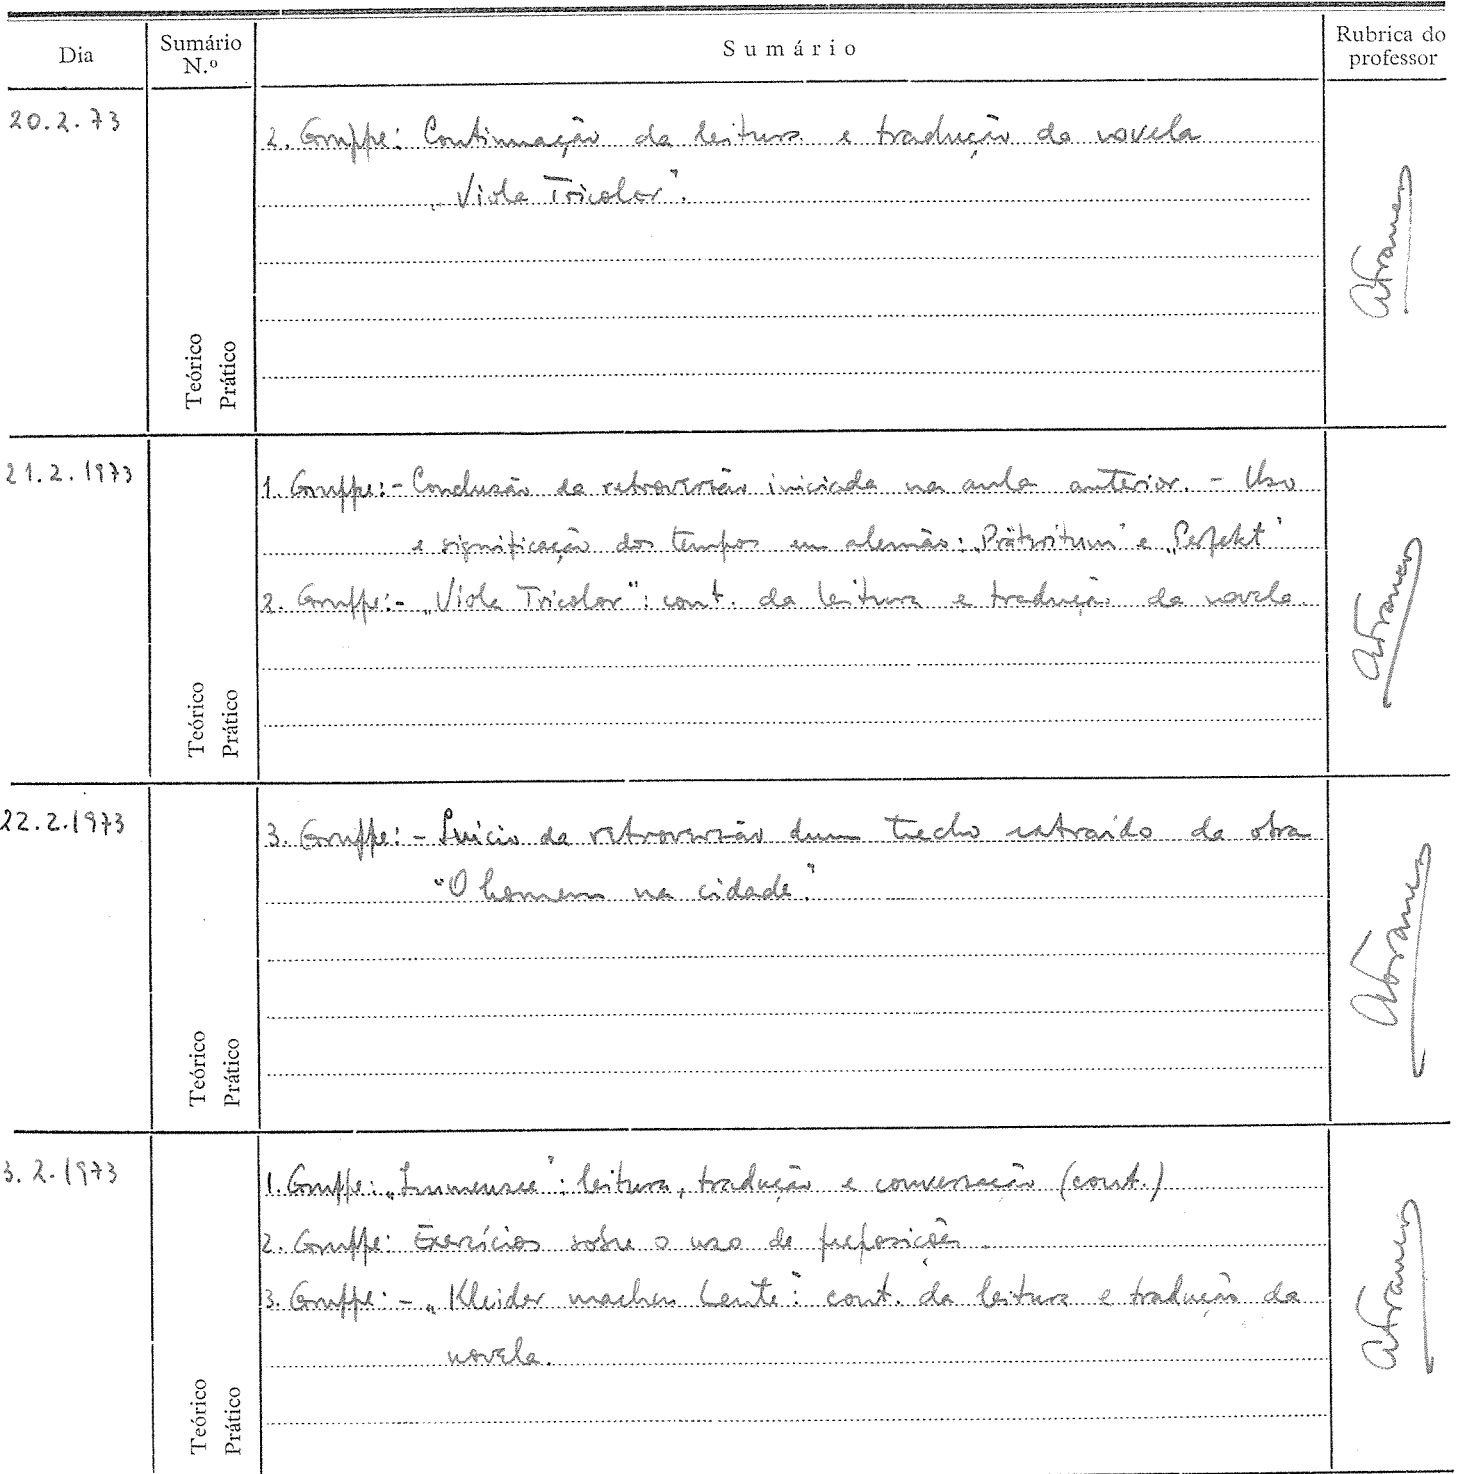 Dia
Sumário N.º
Sumário
Rubrica do professor
20.2.73
2. Gruppe: Continuação da leitura e tradução da novela
„Viola Tricolor".
Teórico
Prático
21.2.1973
1. Gruppe:- Conclusão da retroversão iniciada na aula anterior. - Uso
e significação dos tempos em alemão: „Präteritum" e „Perfekt"
2. Gruppe:- „Viola Tricolor": cont. da leitura e tradução da novela.
Teórico
Prático
22.2.1973
3. Gruppe:- Início da retroversão dum trecho extraído da obra
"O homem na cidade."
Teórico
Prático
3.2.1973
1. Gruppe: „Immensee": leitura, tradução e conversação (cont.)
2. Gruppe: Exercícios sobre o uso de preposições.
3. Gruppe:- „Kleider machen Leute": cont. da leitura e tradução da
novela.
Teórico
Prático